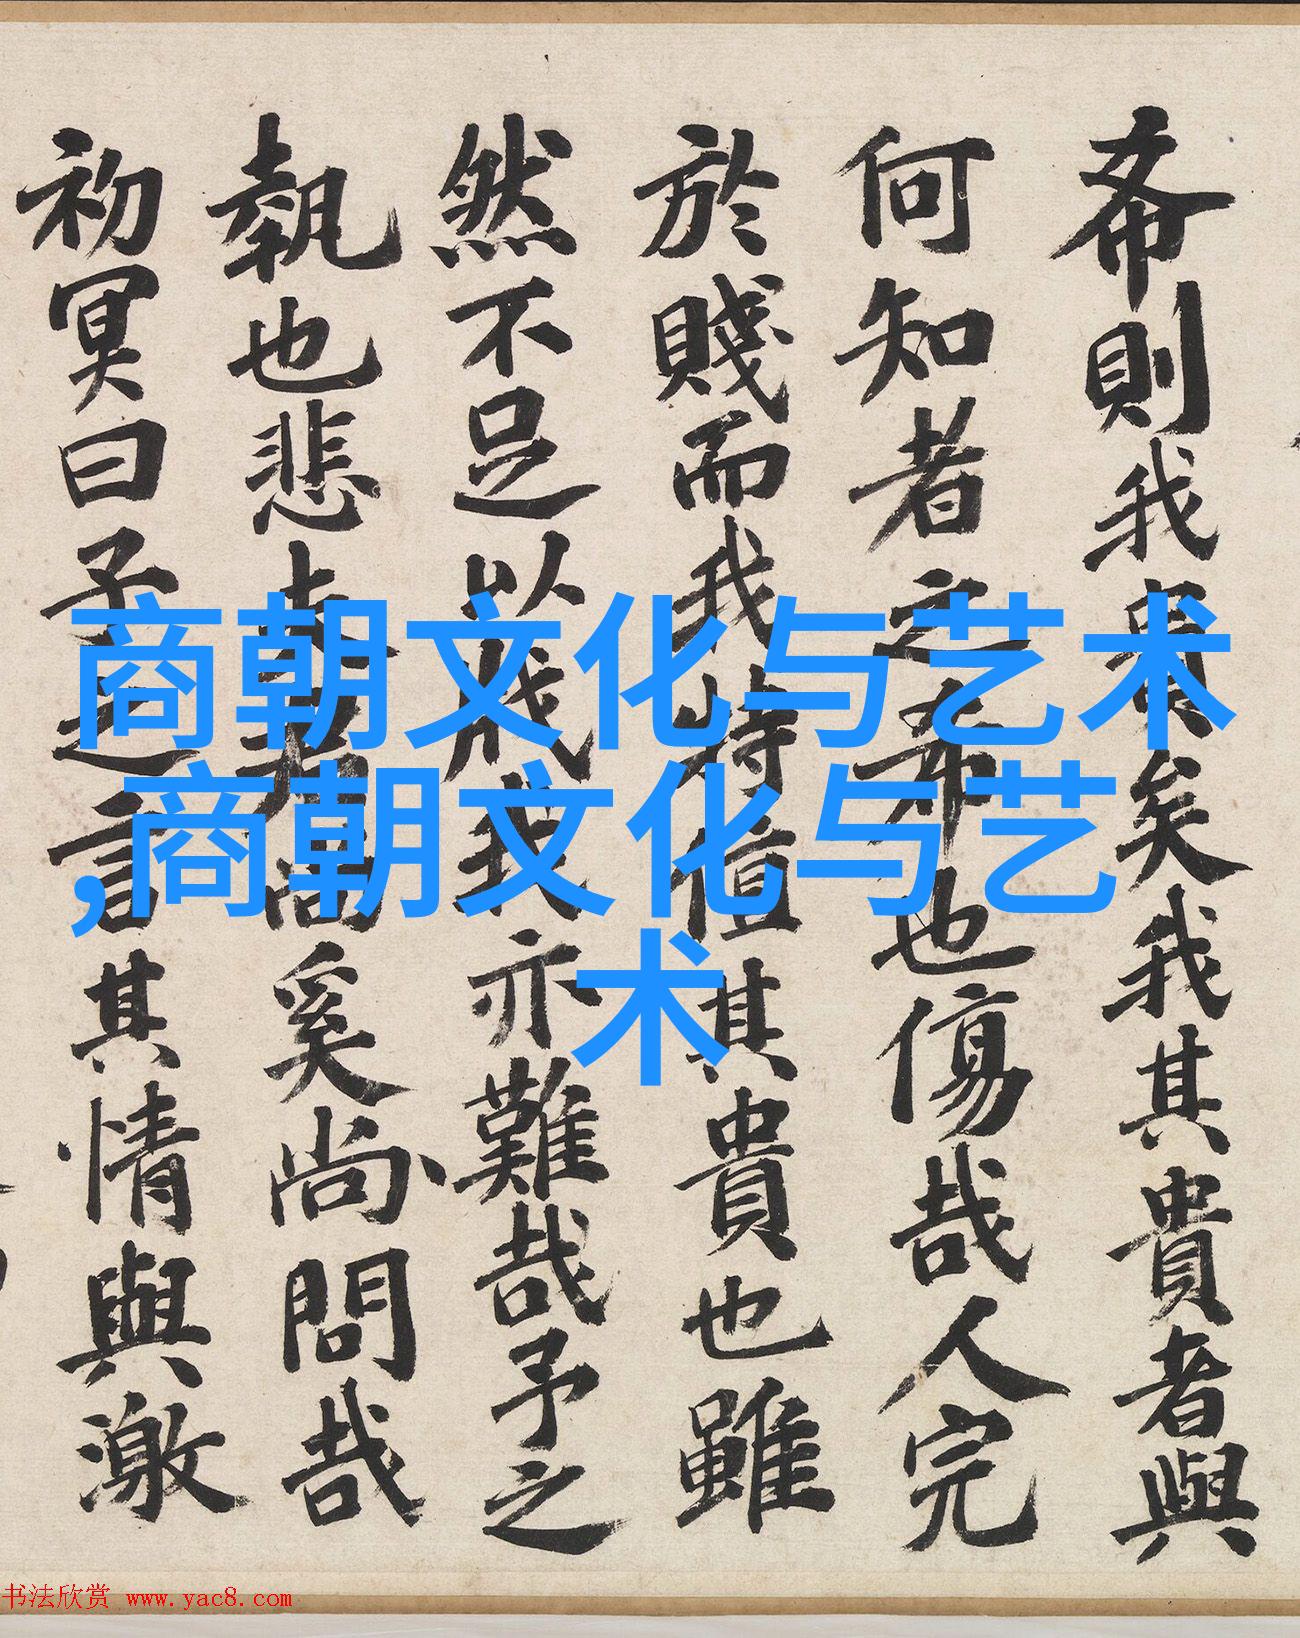 希則我貴矣我其貴者與
何知者之希也傷哉人完
於賤而我持值其貴也雖
然不足以戕我亦難哉予之
執也悲夫尚奚尚問哉
初冥曰子之言其情與激
商朝文化与艺术
,商朝文化与艺
术
书法欣赏 www.yac8.com